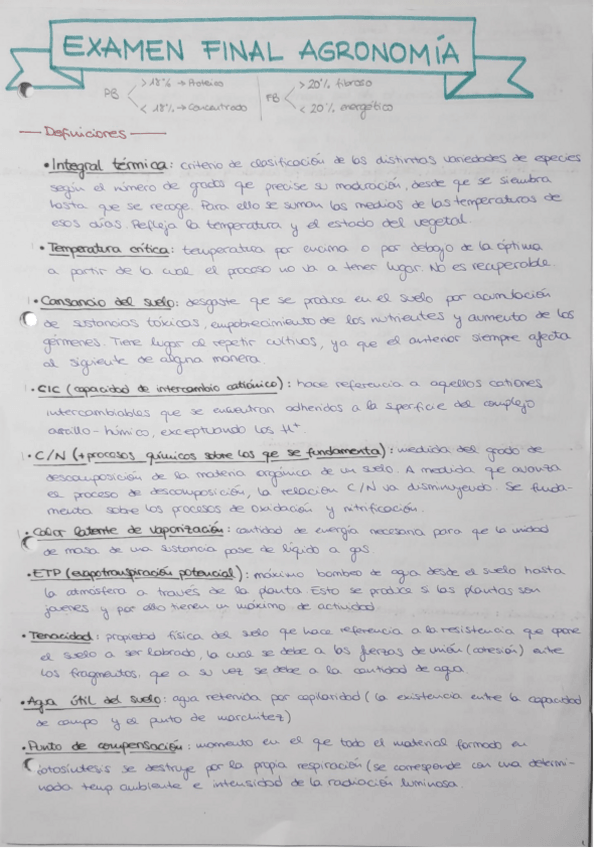 EXAMEN FINAL AGRONOMÍA
PB > 18% → Proteico FB > 20% fibroso
< 18% → Concentrado < 20% energético
Definiciones
• Integral térmica: criterio de clasificación de las distintas variedades de especies
según el número de grados que precise su maduración, desde que se siembra
hasta que se recoge. Para ello se suman las medias de las temperaturas de
esos días. Refleja la temperatura y el estado del vegetal.
• Temperatura crítica: temperatura por encima o por debajo de la óptima
a partir de la cual el proceso no va a tener lugar. No es recuperable.
• Cansancio del suelo: desgaste que se produce en el suelo por acumulación
de sustancias tóxicas, empobrecimiento de los nutrientes y aumento de los
gérmenes. Tiene lugar al repetir cultivos, ya que el anterior siempre afecta
al siguiente de alguna manera.
• CIC (capacidad de intercambio catiónico): hace referencia a aquellos cationes
intercambiables que se encuentran adheridos a la superficie del complejo
arcillo-húmico, exceptuando los H⁺.
• C/N (+ procesos químicos sobre los qe se fundamenta): medida del grado de
descomposición de la materia orgánica de un suelo. A medida que avanza
el proceso de descomposición, la relación C/N va disminuyendo. Se funda-
menta sobre los procesos de oxidación y nitrificación.
• Calor latente de vaporización: cantidad de energía necesaria para que la unidad
de masa de una sustancia pase de líquido a gas.
• ETP (evapotranspiración potencial): máximo bombeo de agua desde el suelo hasta
la atmósfera a través de la planta. Esto se produce si las plantas son
jóvenes y por ello tienen un máximo de actividad
• Tenacidad: propiedad física del suelo que hace referencia a la resistencia que opone
el suelo a ser labrado, la cual se debe a las fuerzas de unión (cohesión) entre
los fragmentos, que a su vez se debe a la cantidad de agua.
• Agua útil del suelo: agua retenida por capilaridad (la existencia entre la capacidad
de campo y el punto de marchitez)
• Punto de compensación: momento en el qe todo el material formado en
fotosíntesis se destruye por la propia respiración (se corresponde con una determi-
nada temp ambiente e intensidad de la radiación luminosa.